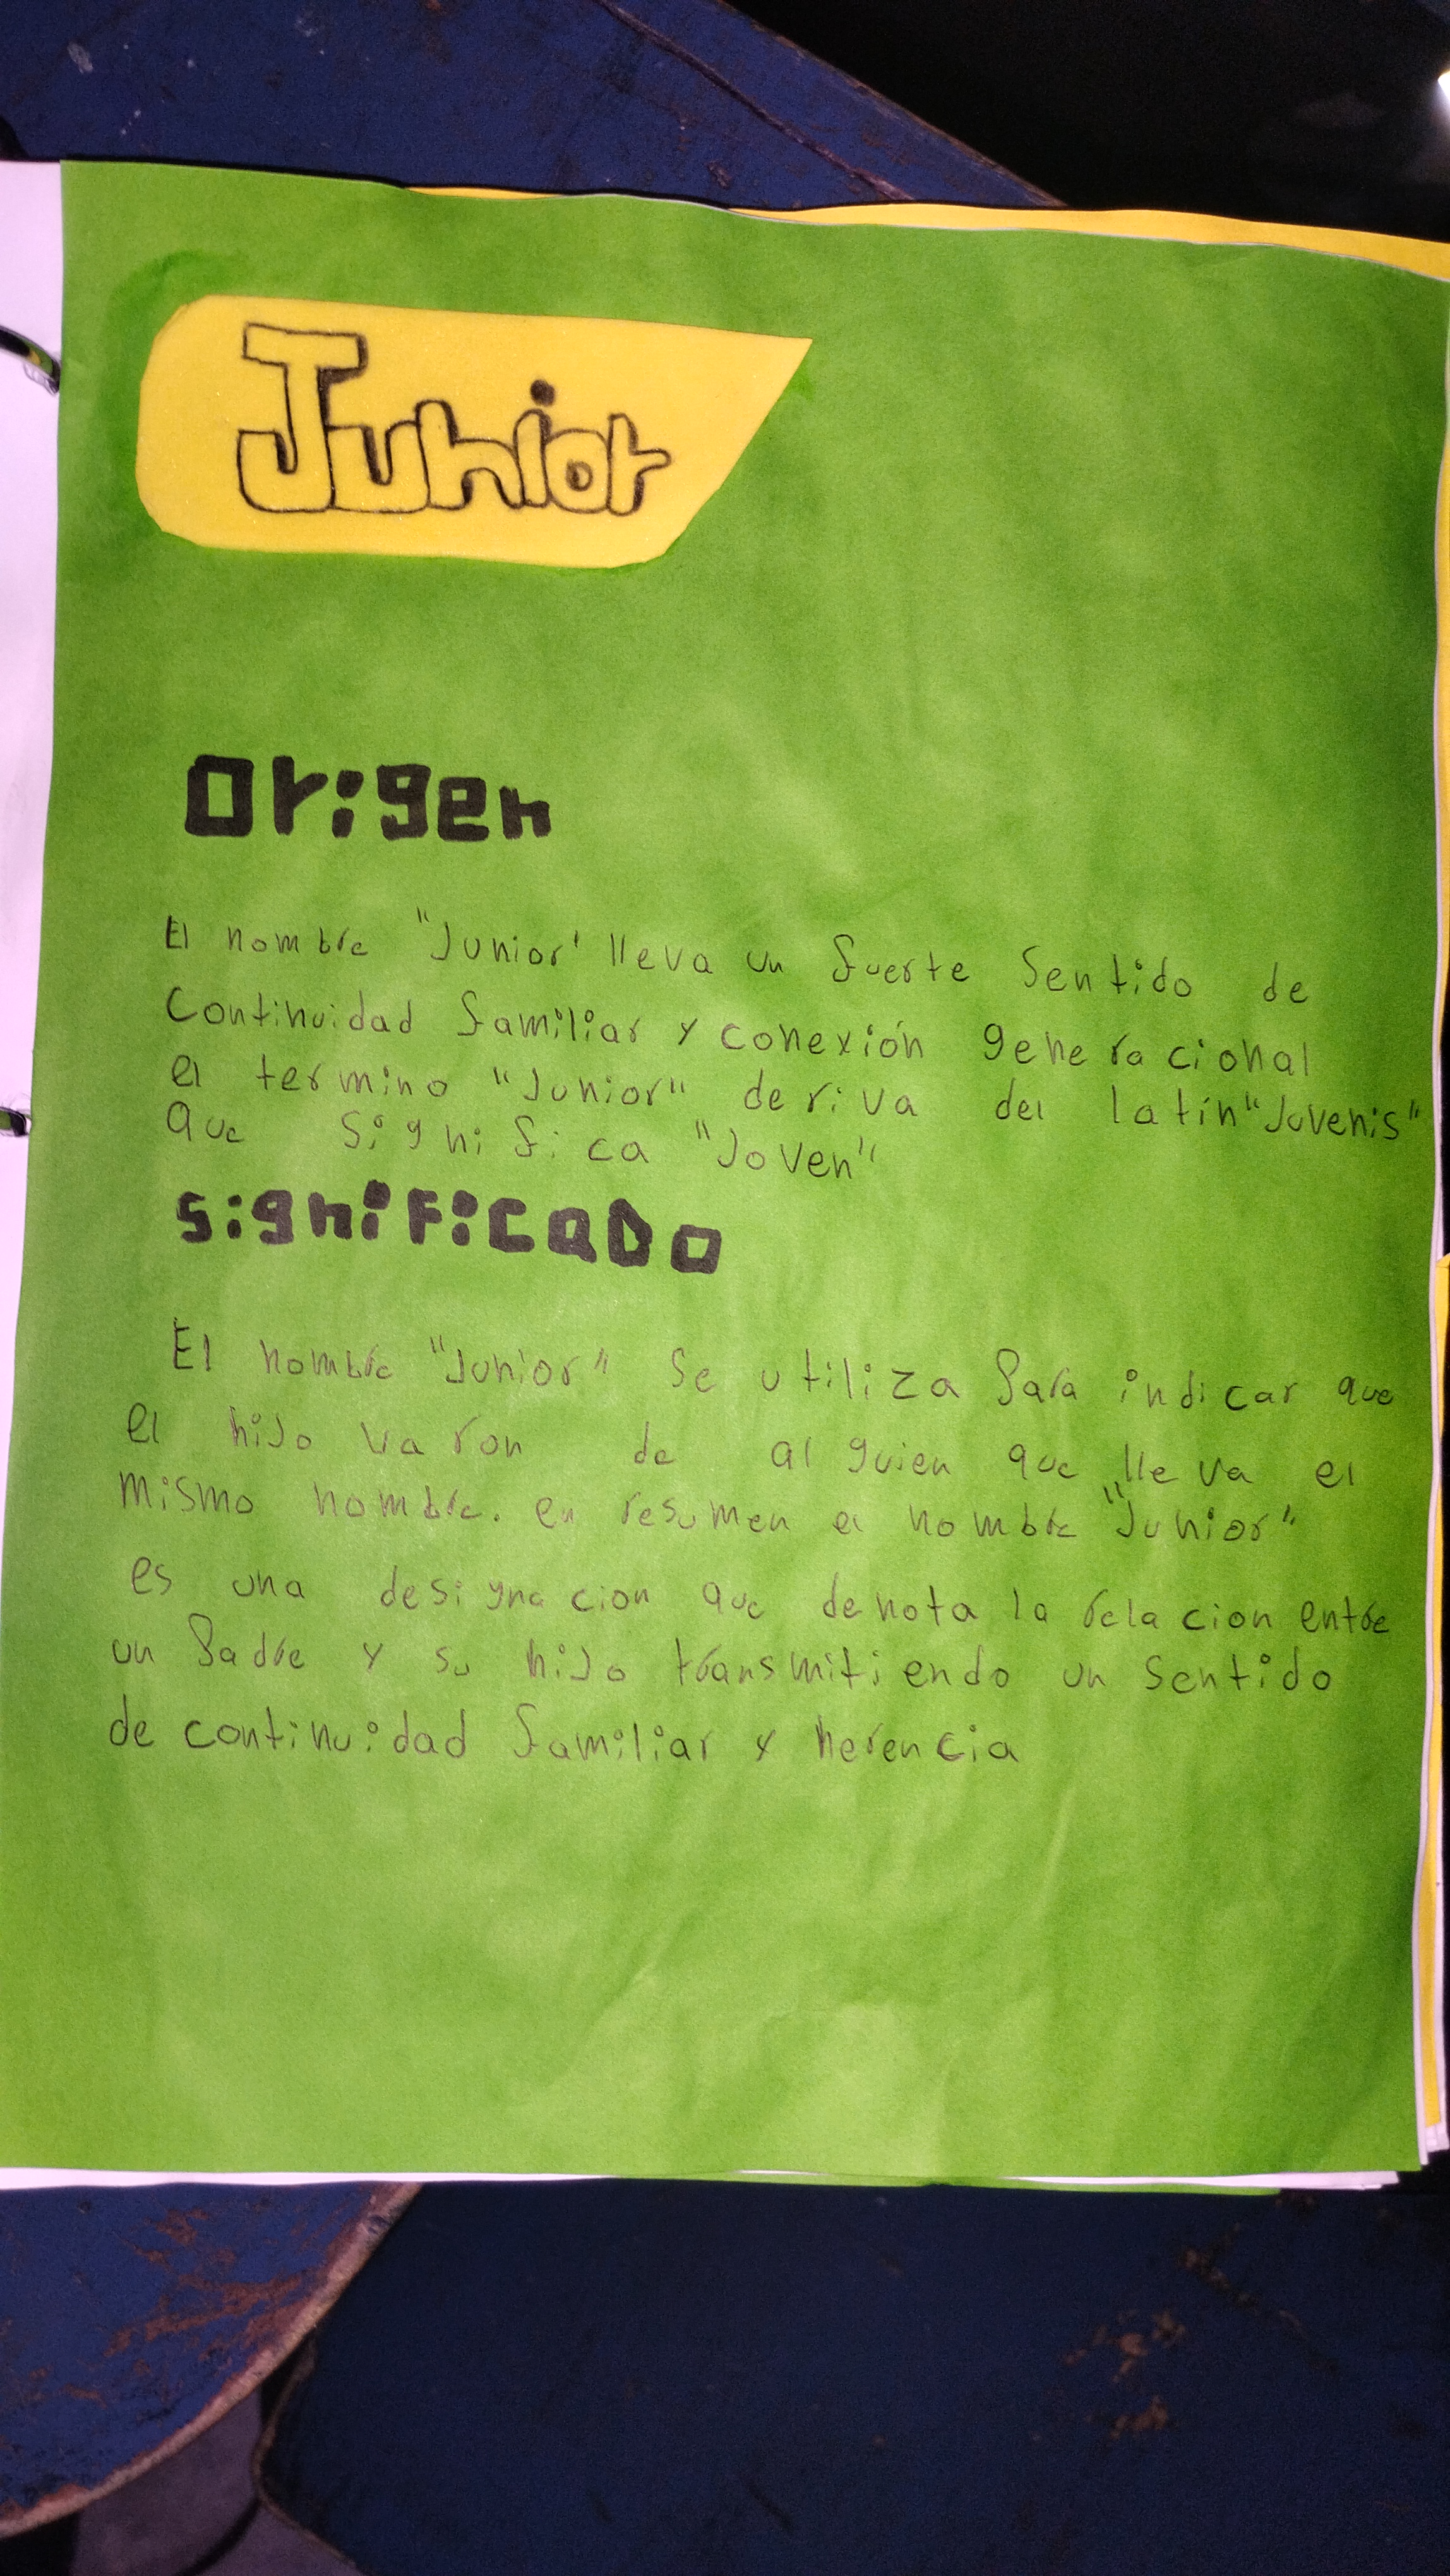 Junior
Origen
El nombre "Junior' lleva un fuerte sentido de
Continuidad familiar y conexión generacional
el termino "Junior" deriva del latín "Juvenis"
que significa "Joven"
significado
El nombre "Junior" se utiliza para indicar que
el hijo varon de alguien que lleva el
mismo nombre. en resumen el nombre "Junior"
es una designacion que denota la relacion entre
un padre y su hijo transmitiendo un sentido
de continuidad familiar y herencia